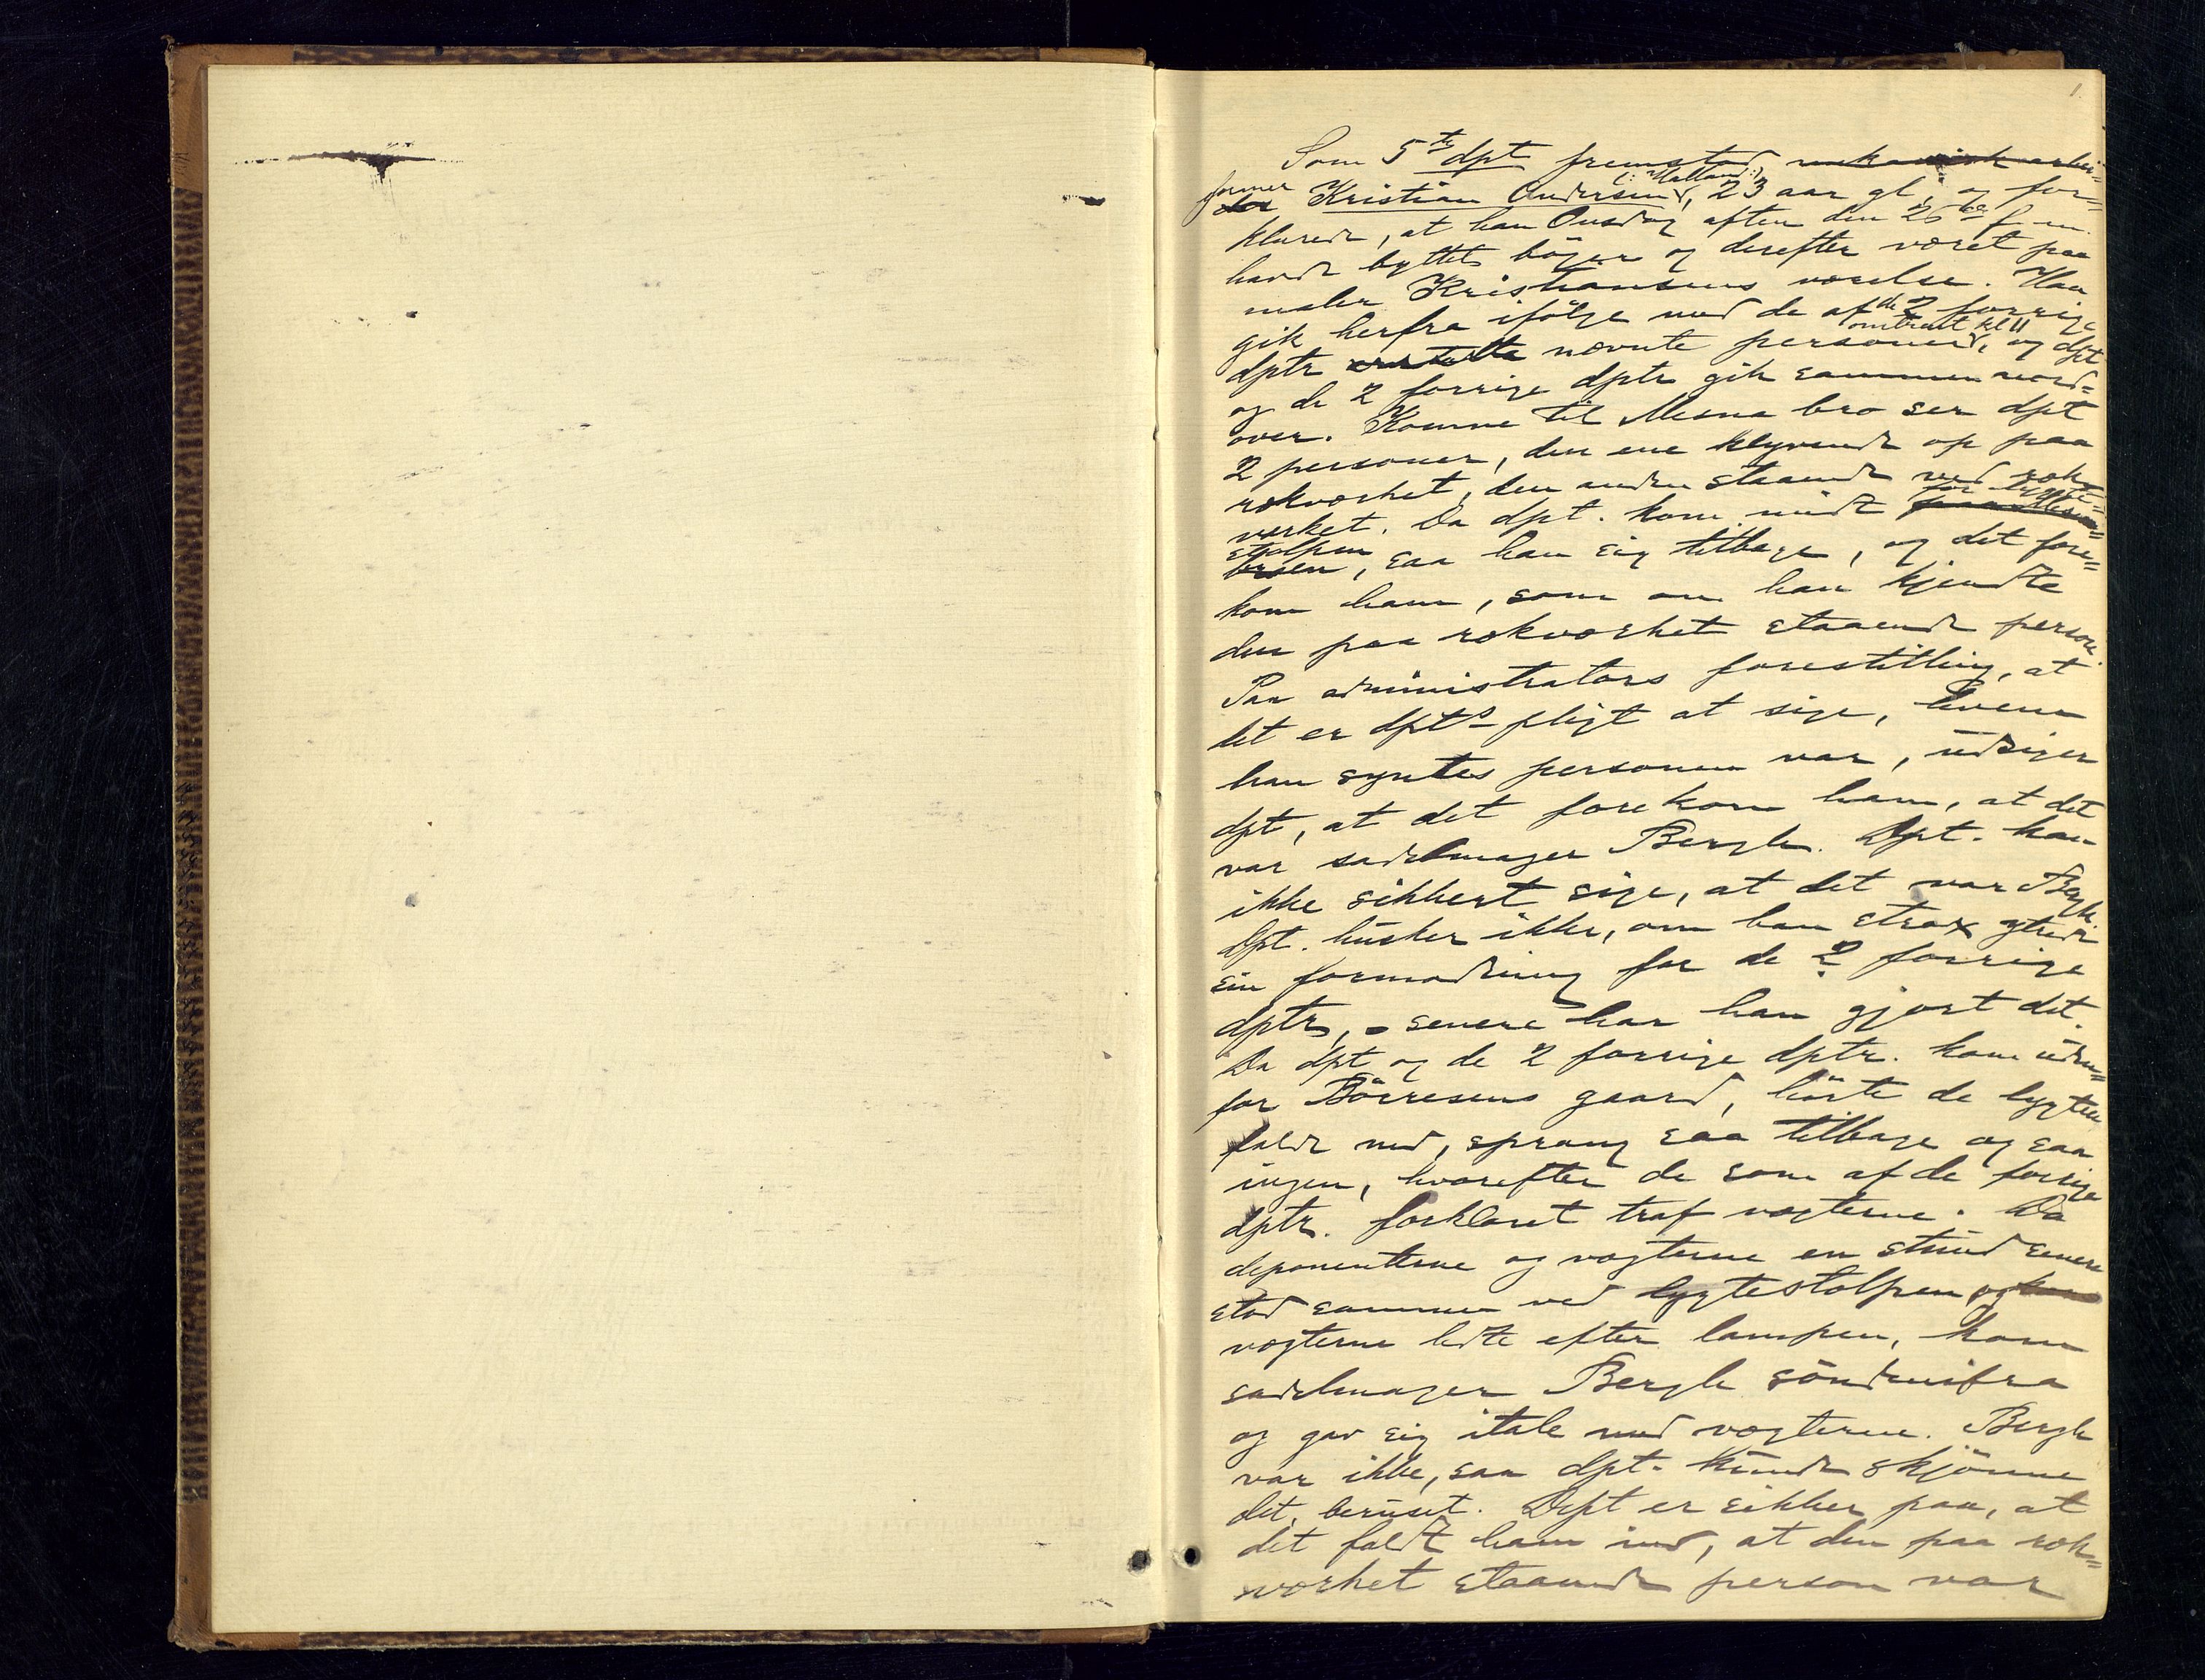 1
Som 5te dpt fremstod mekanisk arbei=
former der Kristian Andersen (: Mølland :), 23 aar gl, og for=
klarede, at han Onsdag aften den 26de f. m.
havde byttet bøger og derefter været paa
maler Kristiansens værelse. Han
gik herfra ifølge med de af de 2 forrige
dptr nævnte personer, omtrent kl 11 og dpt
og de 2 forrige dptr gik sammen nord=
over. Komne til Mesna bro ser dpt
2 personer, den ene klyvende op paa
rækværket, den anden staaende ved ræk=
værket. Da dpt. kom midt for lygte=
stolpen broen, saa han sig tilbage, og det fore=
kom ham, som om han kjendte
den paa rækværket staaende person.
Paa administrators forestilling, at
det er dpts pligt at sige, hvem
han syntes personen var, udsiger
dpt, at det forekom ham, at det
var sadelmager Bergh. Dpt. kan
ikke sikkert sige, at det var Bergh.
Dpt. husker ikke, om han strax ytrede
sin formodning for de 2 forrige
dptr, - senere har han gjort det.
Da dpt og de 2 forrige dptr. kom uden=
for Börresens gaard, hörte de lygten
falde ned, sprang saa tilbage og saa
ingen, hvorefter de som af de forrige
dptr. forklaret traf vægterne. Da
deponenterne og vægterne en stund senere
stod sammen ved lygtestolpen og
vægterne ledte efter lampen, kom
sadelmager Bergh söndenifra
og gav sig itale med vægterne. Bergh
var ikke, saa dpt. kunde skjönne
det, beruset. Dpt er sikker paa, at
det faldt ham ind, at den paa ræk=
værket staaende person var